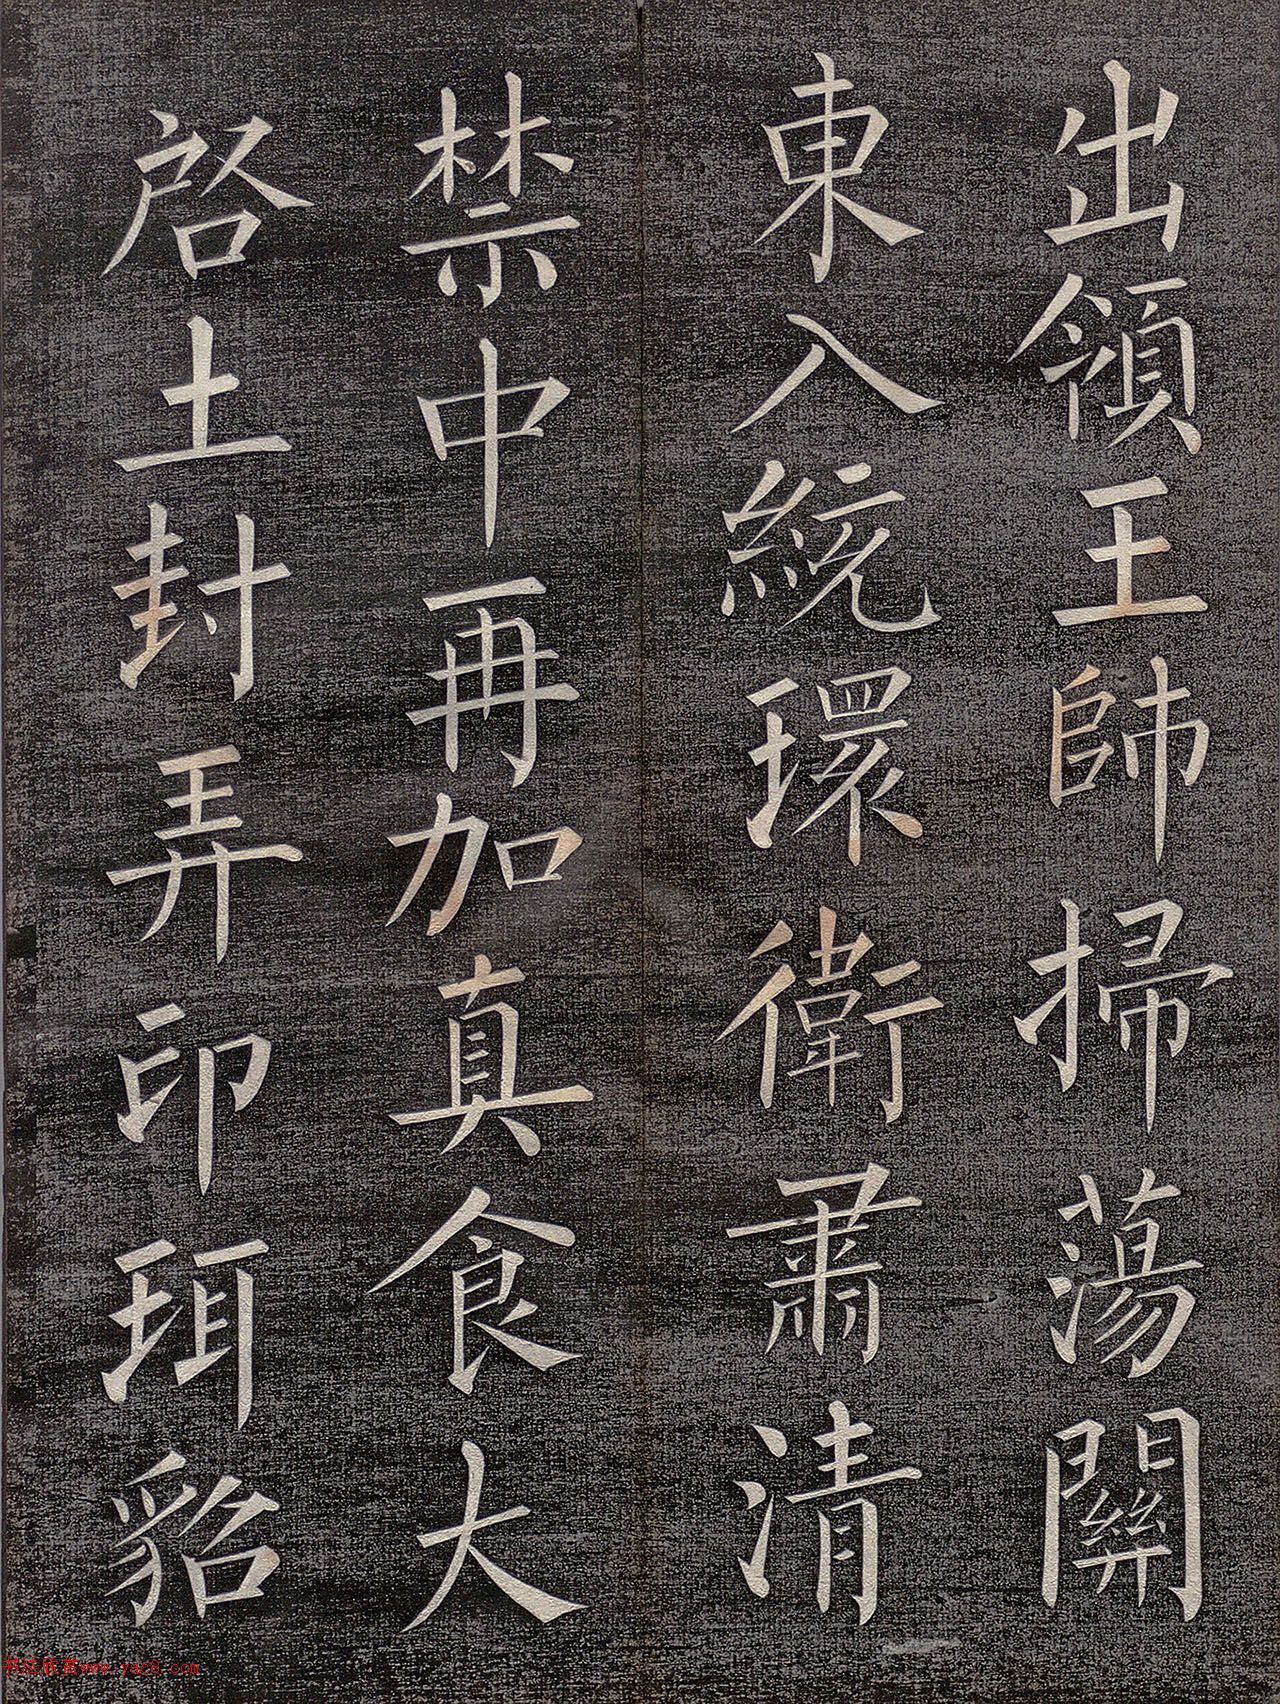 出領王師掃蕩關
東入統環衛肅清
禁中再加真食大
啓土封弄印珥貂
书法欣赏www.yac8.com